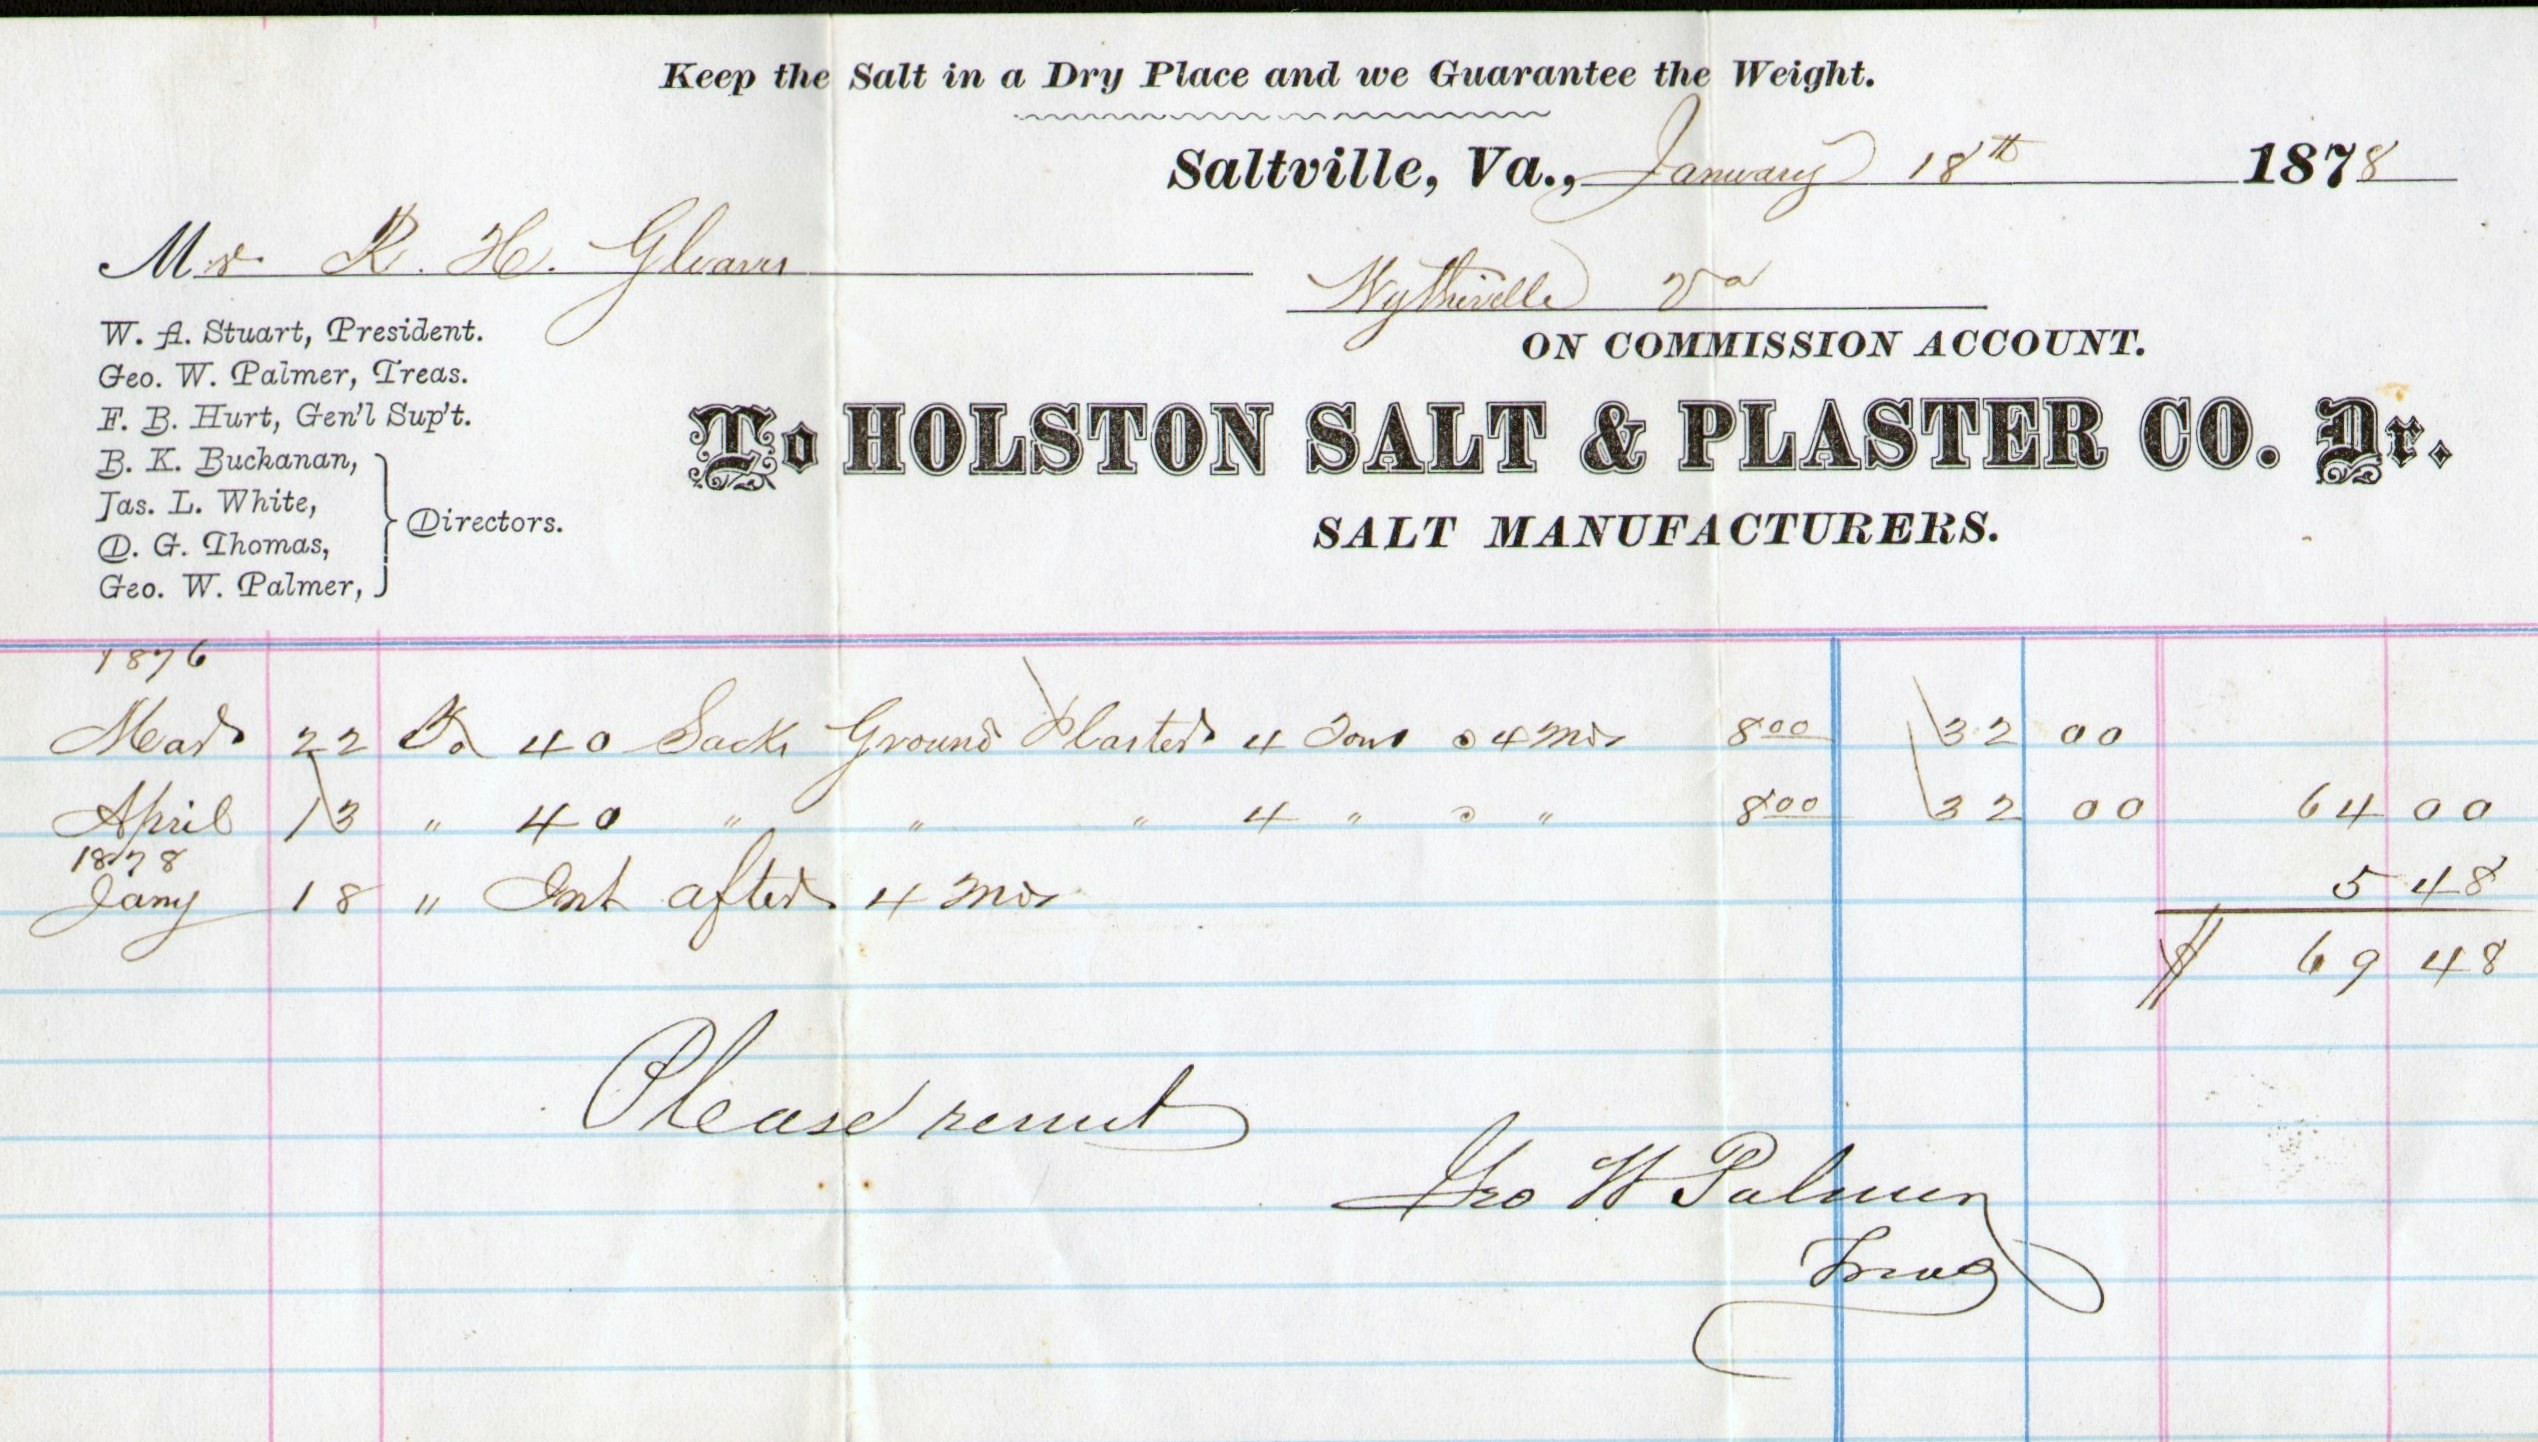 Keep the Salt in a Dry Place and we Guarantee the Weight.
Saltville, Va., January 18th 1878
Mr. R. H. Gleaves
Wytheville Va
ON COMMISSION ACCOUNT.
W. A. Stuart, President.
Geo. W. Palmer, Treas.
F. B. Hurt, Gen'l Sup't.
B. K. Buchanan,
Jas. L. White,
D. G. Thomas,
Geo. W. Palmer,
Directors.
To HOLSTON SALT & PLASTER CO. Dr.
SALT MANUFACTURERS.
1876
Mar 22 To 40 Sacks Ground Plaster 4 Tons @ 4 Mos 8 00 32 00
April 13 " 40 " " " 4 " @ " 8 00 32 00 64 00
1878
Jany 18 " Int after 4 Mos 5 48
$ 69 48
Please remit
Geo W Palmer
Treas